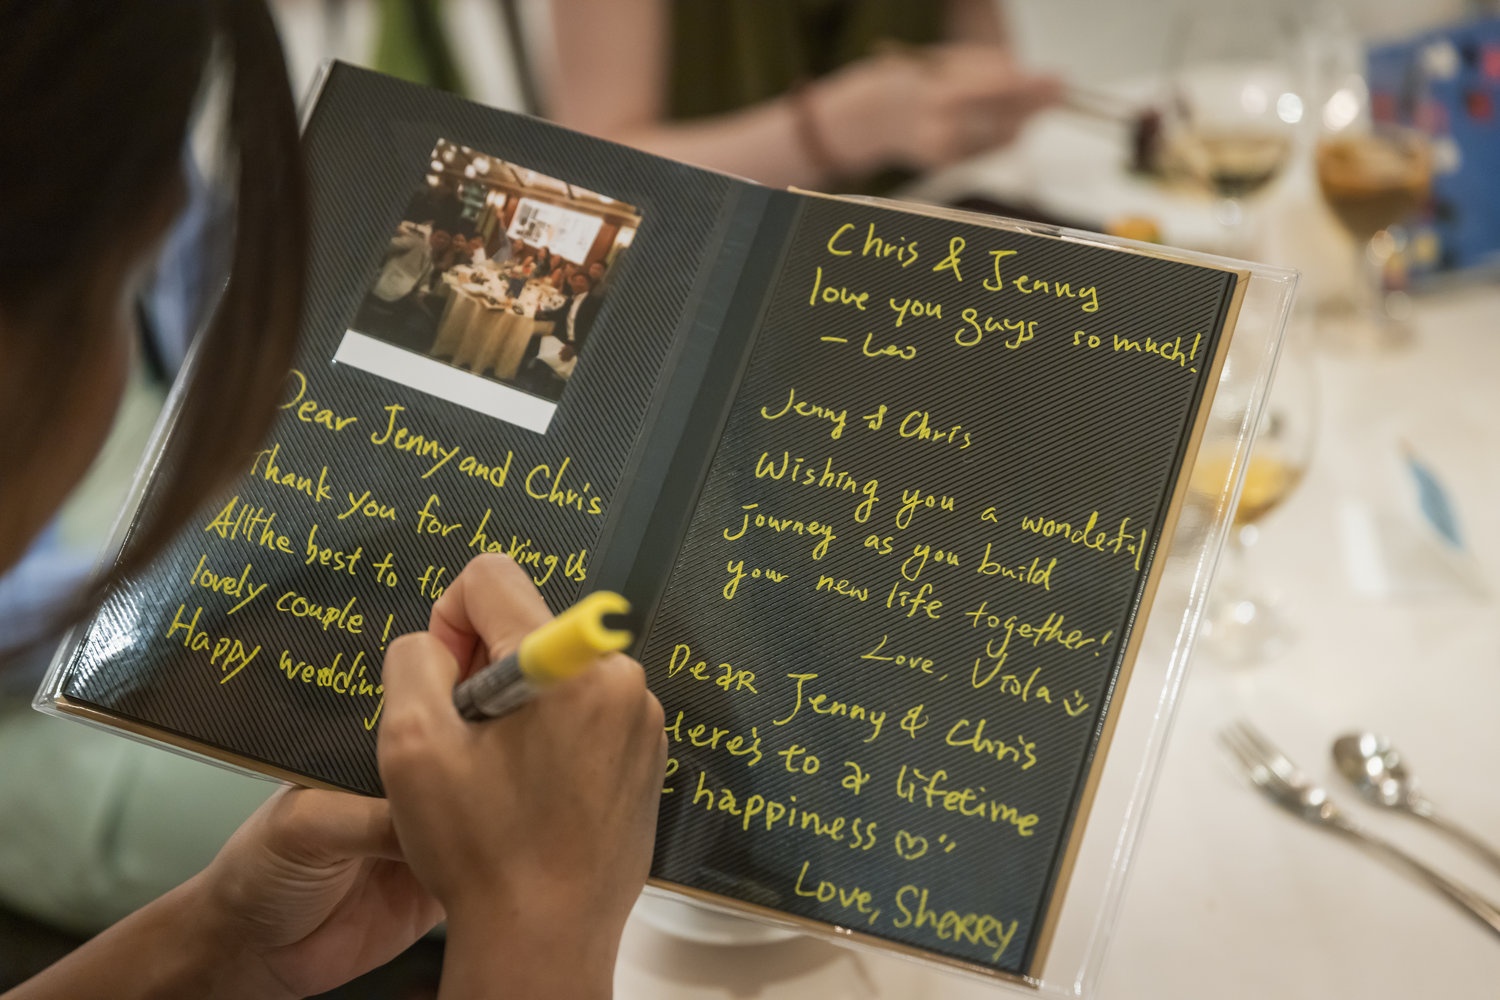 Dear Jenny and Chris
Thank you for having Us
All the best to
lovely couple !
Happy wedding
Chris & Jenny
love you guys so much!
- Leo
Jenny & Chris
Wishing you a wonderful
journey as you build
your new life together!
Love, Viola
Dear Jenny & Chris
Here's to a lifetime
& happiness
Love, Sherry